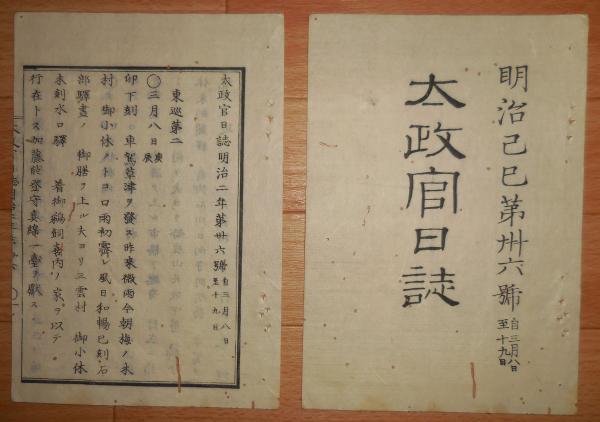 明治己巳第卅六號
自三月八日
至十九日
太政官日誌
太政官日誌明治二年第卅六號
自三月八日
至十九日
東巡第二
〇三月八日庚辰
卯下刻。車駕草津ヲ發ス昨來微雨今朝梅ノ木
村 御小休ノトコロ雨初霽レ風日和暢巳刻石
部驛晝ノ 御膳ヲ上ル夫ヨリ三雲村 御小休
未刻水口驛 着御鵜飼喜内カ家ヲ以テ。
行在トス加藤能登守真綿一臺ヲ獻ス